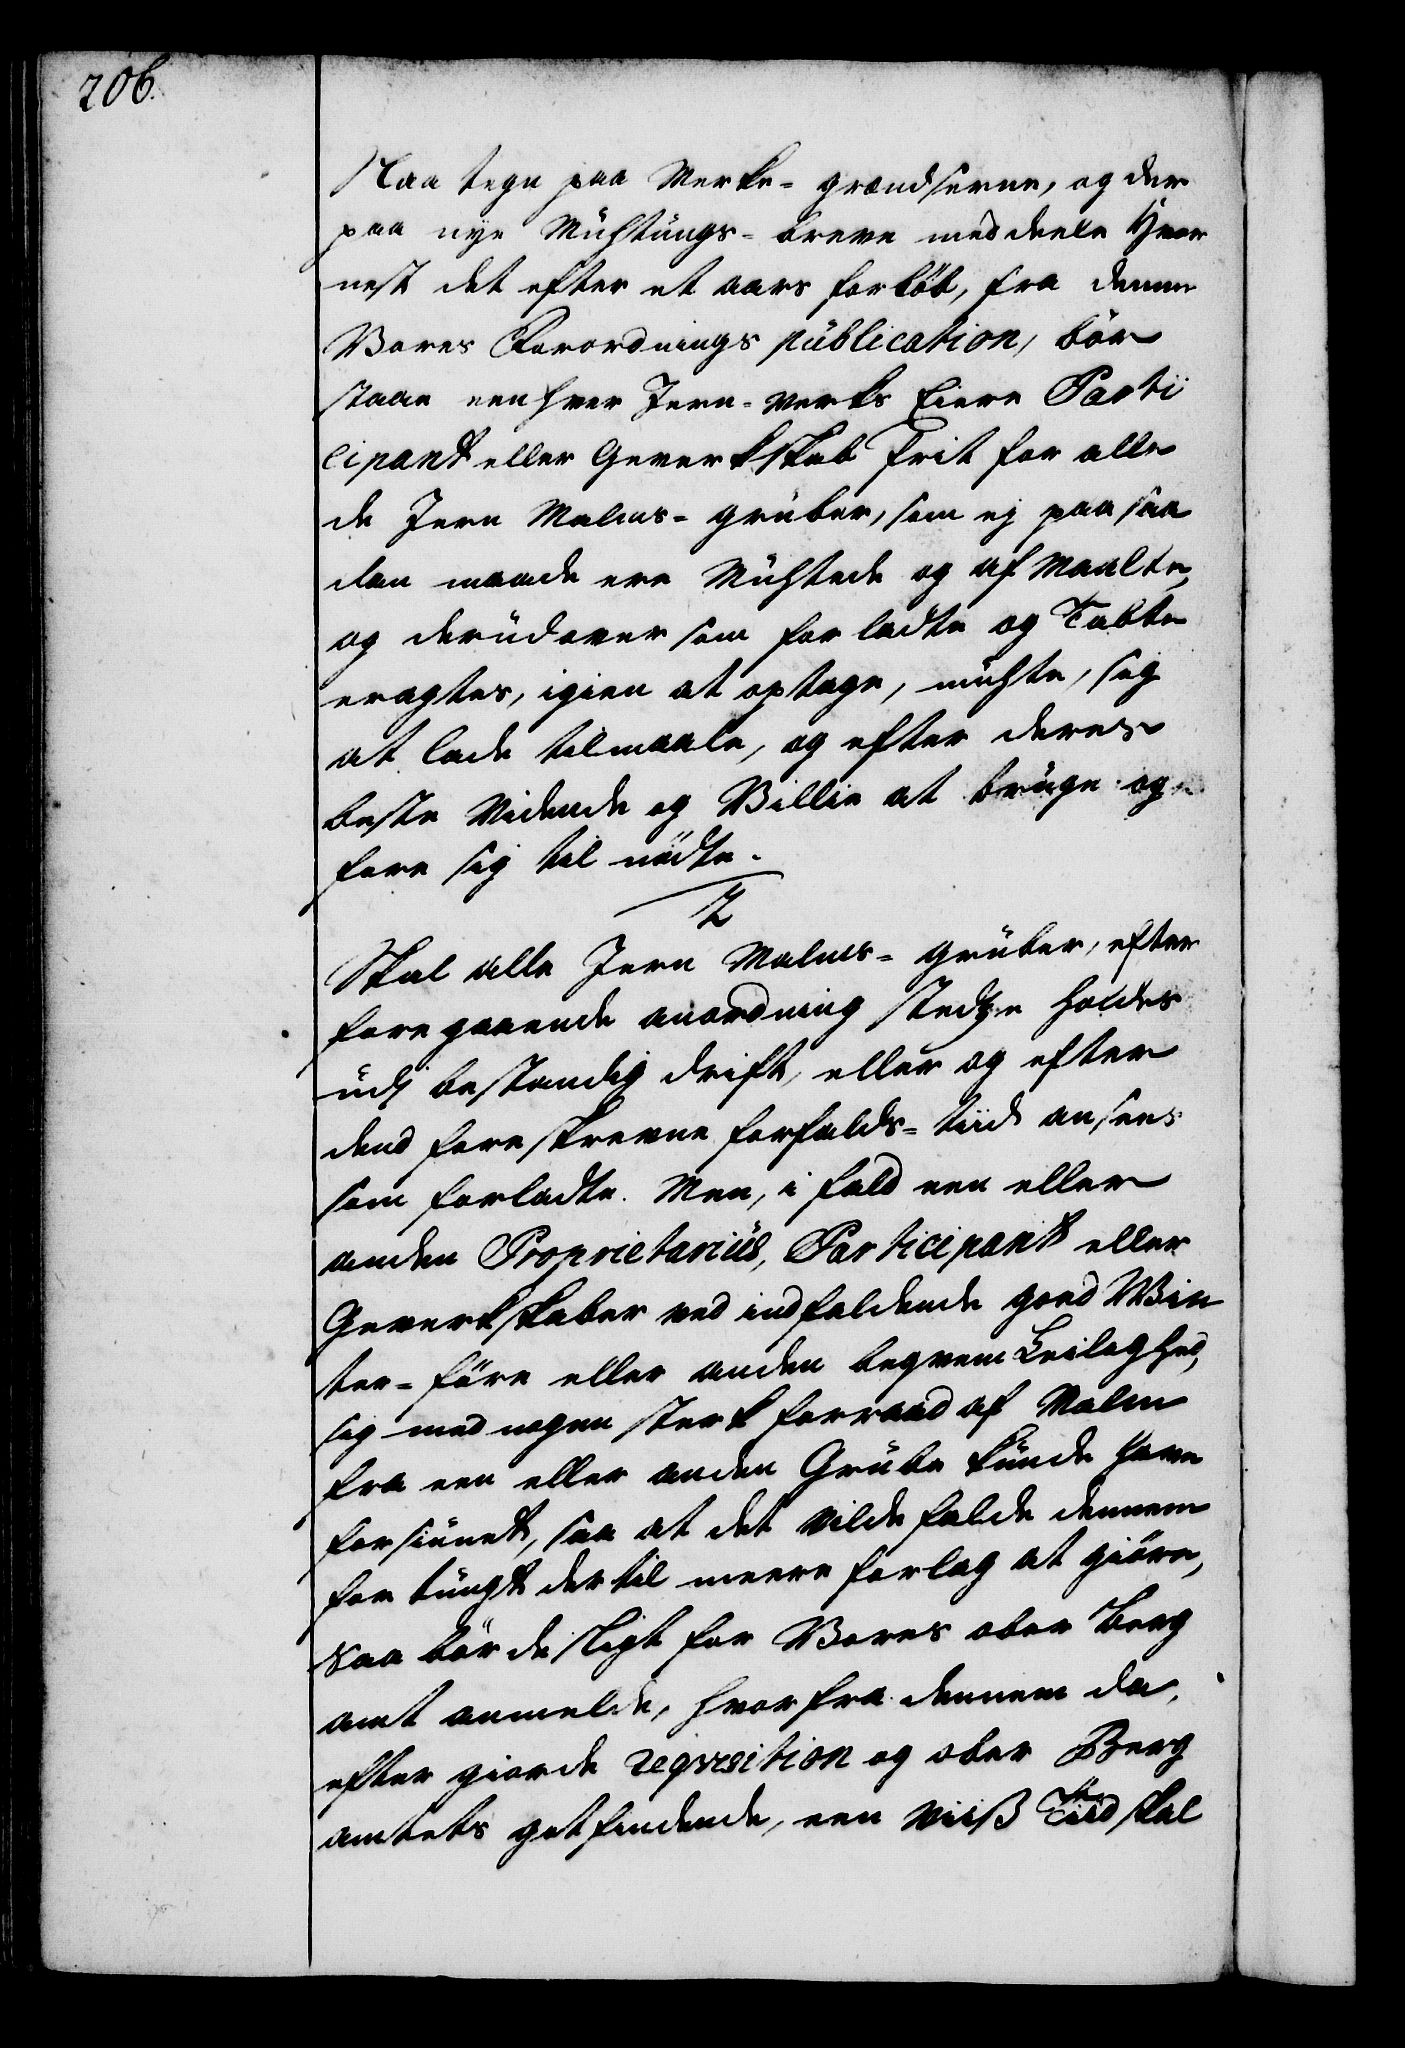 206.
Slaa tegn paa Merke- grændserne, og der
paa nye Muhtungs- breve meddeele Hvor
nest det efter et aars forlöb, fra denne
Vores Forordnings publication, bör
staae eenhver Jern- verks Eiere Parti
cipant eller Geverkskab Frit for alle
de Jern Malms- gruber, som ej paa saa
dan maade ere Muhtede og af Maalte,
og derudover som forladte og Tabte
eragtes, igien at optage, muhte, sig
at lade tilmaale, og efter deres
beste Vidende og Villie at bruge og
føre sig til nödte.
2
Skal alle Jern Malms- gruber, efter
foregaaende anordning stedze holdes
udj bestandig drift, eller og efter
dend foreskrevne forfalds- tiid ansees
som forladte. Men, i fald een eller
anden Proprietarius, Participant eller
Geverkskaber ved indfaldende goed Win
ter- före eller anden beqvem Leilaghed,
sig med nogen sterk forraad af Malm
fra een eller anden Grube kunde have
forsiunet, saa at det vilde falde dennem
for tungt dertil meere forlag at giöre,
Saa bör de sligt for Vores ober Berg
amt anmelde, hvorfra dennem da,
efter giorde reqvisition og ober Berg
amtets gotfindende, een Viiß Tiid skal